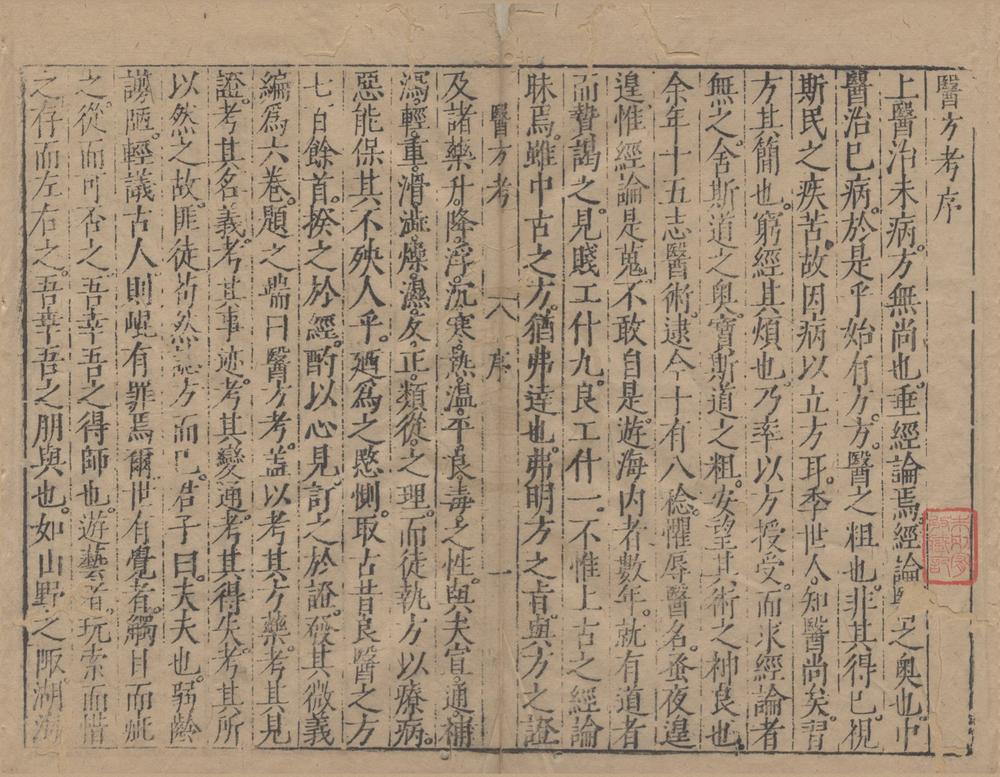 醫方考序
上醫治未病。方無尚也。垂經論焉。經論醫之奧也。中
醫治已病。於是乎始有方。方。醫之粗也。非其得已。視
斯民之疾苦。故因病以立方耳。季世人。知醫尚矣。習
方其簡也。窮經其煩也。乃率以方授受。而求經論者
無之。舍斯道之奧。寶斯道之粗。安望其術之神良也
余年十五志醫術。逮今十有八稔。懼辱醫名。蚤夜遑
遑。惟經論是蒐。不敢自是。遊海內者數年。就有道者
而贄謁之。見賤工什九。良工什一。不惟上古之經論
昧焉。雖中古之方。猶弗達也。弗明方之旨。與方之證
醫方考 序 一
及諸藥升。降。浮。沉。寒。熱。溫。平。良。毒之性。與夫宣。通。補
瀉。輕。重。滑。澁。燥。濕。反。正。類從之理。而徒執方以療病。
惡能保其不殃人乎。迺為之愍惻。取古昔良醫之方
七百餘首。揆之於經。酌以心見。訂之於證。發其微義
編爲六卷。題之端曰醫方考。蓋以考其方藥。考其見
證。考其名義。考其事迹。考其變通。考其得失。考其所
以然之故。匪徒苟然誌方而已。君子曰。夫夫也。弱齡
謭陋。輕議古人。則岷有罪焉爾。世有覺者。觸目而疵
之。從而可否之。吾幸吾之得師也。遊藝者。玩索而惜
之。存而左右之。吾幸吾之朋與也。如山野之陬。湖海